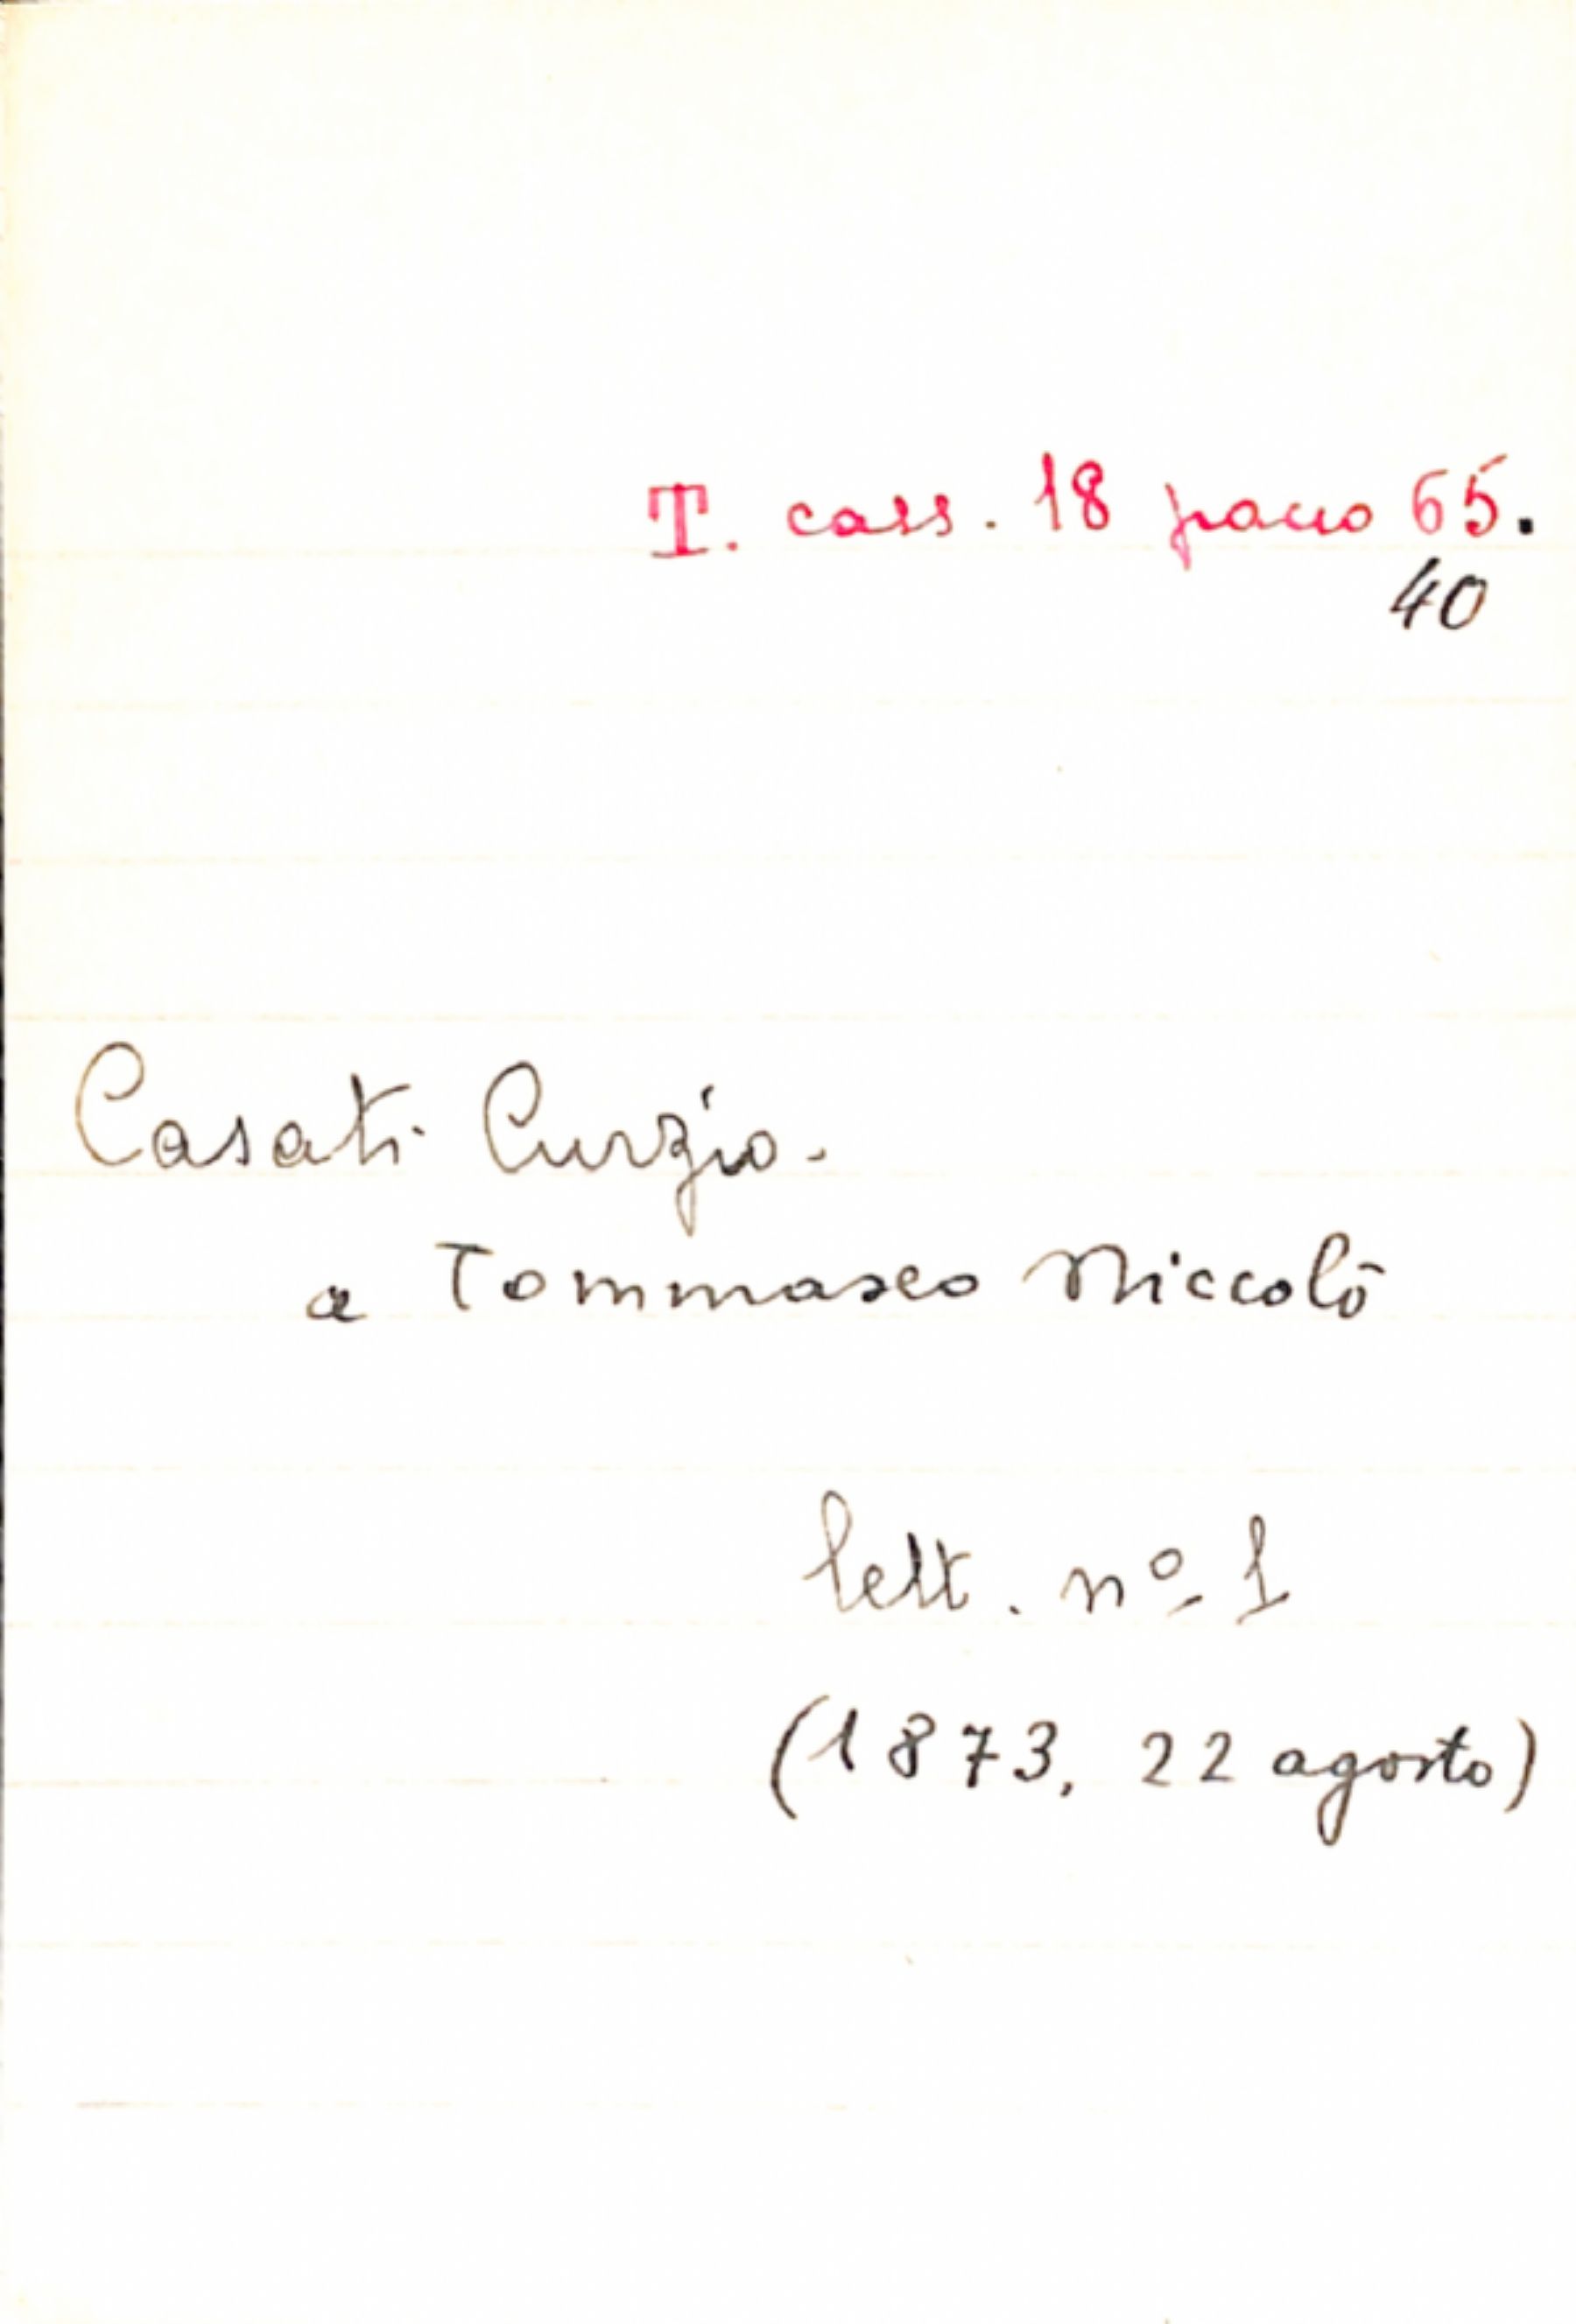 T. cass. 18 pacco 65.
40
Casati Curzio.
a Tommaseo Niccolò
lett. nº 1
(1873, 22 agosto)